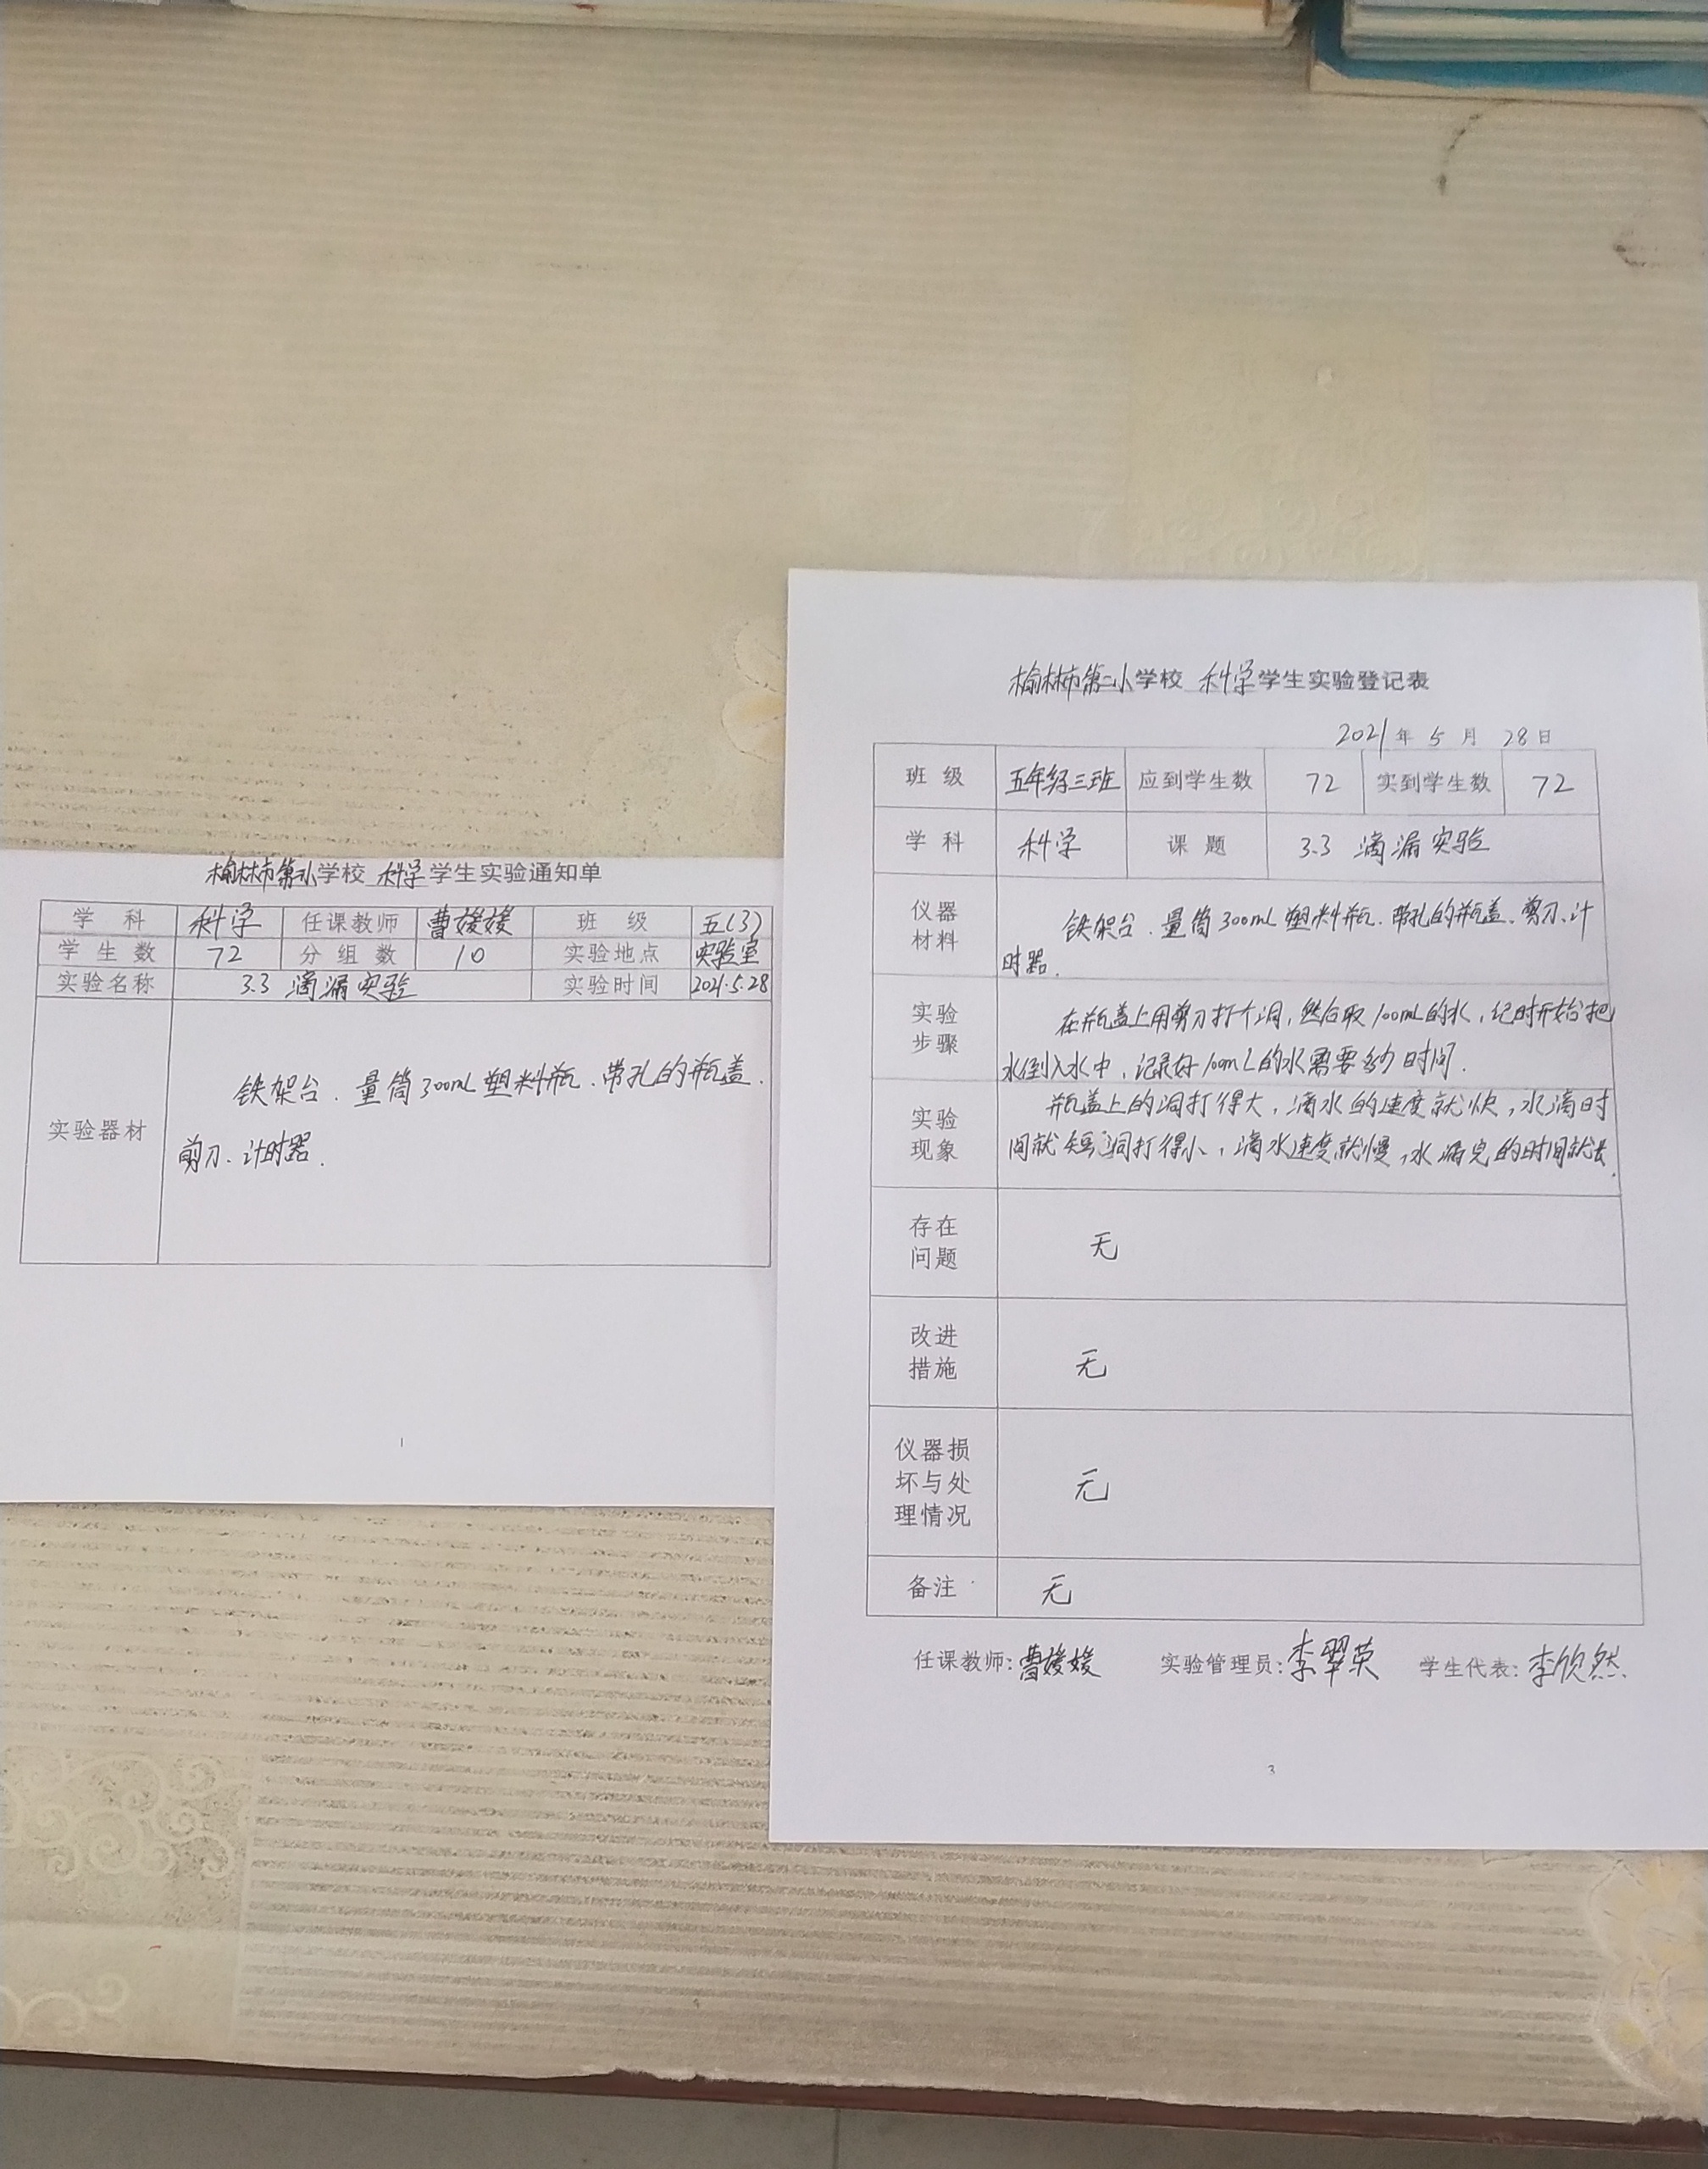 榆林市第二小学校 科学学生实验通知单
学 科 科学 任课教师 曹媛媛 班 级 五(3)
学生数 72 分组数 10 实验地点 实验室
实验名称 3.3 滴漏实验 实验时间 2021.5.28
实验器材
铁架台.量筒300mL塑料瓶.带孔的瓶盖.
剪刀.计时器.
1
榆林市第二小学校 科学学生实验登记表
2021年 5 月 28日
班 级 五年级三班 应到学生数 72 实到学生数 72
学 科 科学 课 题 3.3 滴漏实验
仪器
材料
铁架台.量筒300mL塑料瓶.带孔的瓶盖.剪刀.计
时器.
实验
步骤
在瓶盖上用剪刀打个洞,然后取100mL的水,记时开始把
水倒入水中,记录好100mL的水需要多少时间.
实验
现象
瓶盖上的洞打得大,滴水的速度就快,水滴时
间就短,洞打得小,滴水速度就慢,水漏完的时间就长.
存在
问题
无
改进
措施
无
仪器损
坏与处
理情况
无
备注 无
任课教师:曹媛媛 实验管理员:李翠英 学生代表:李欣然.
3